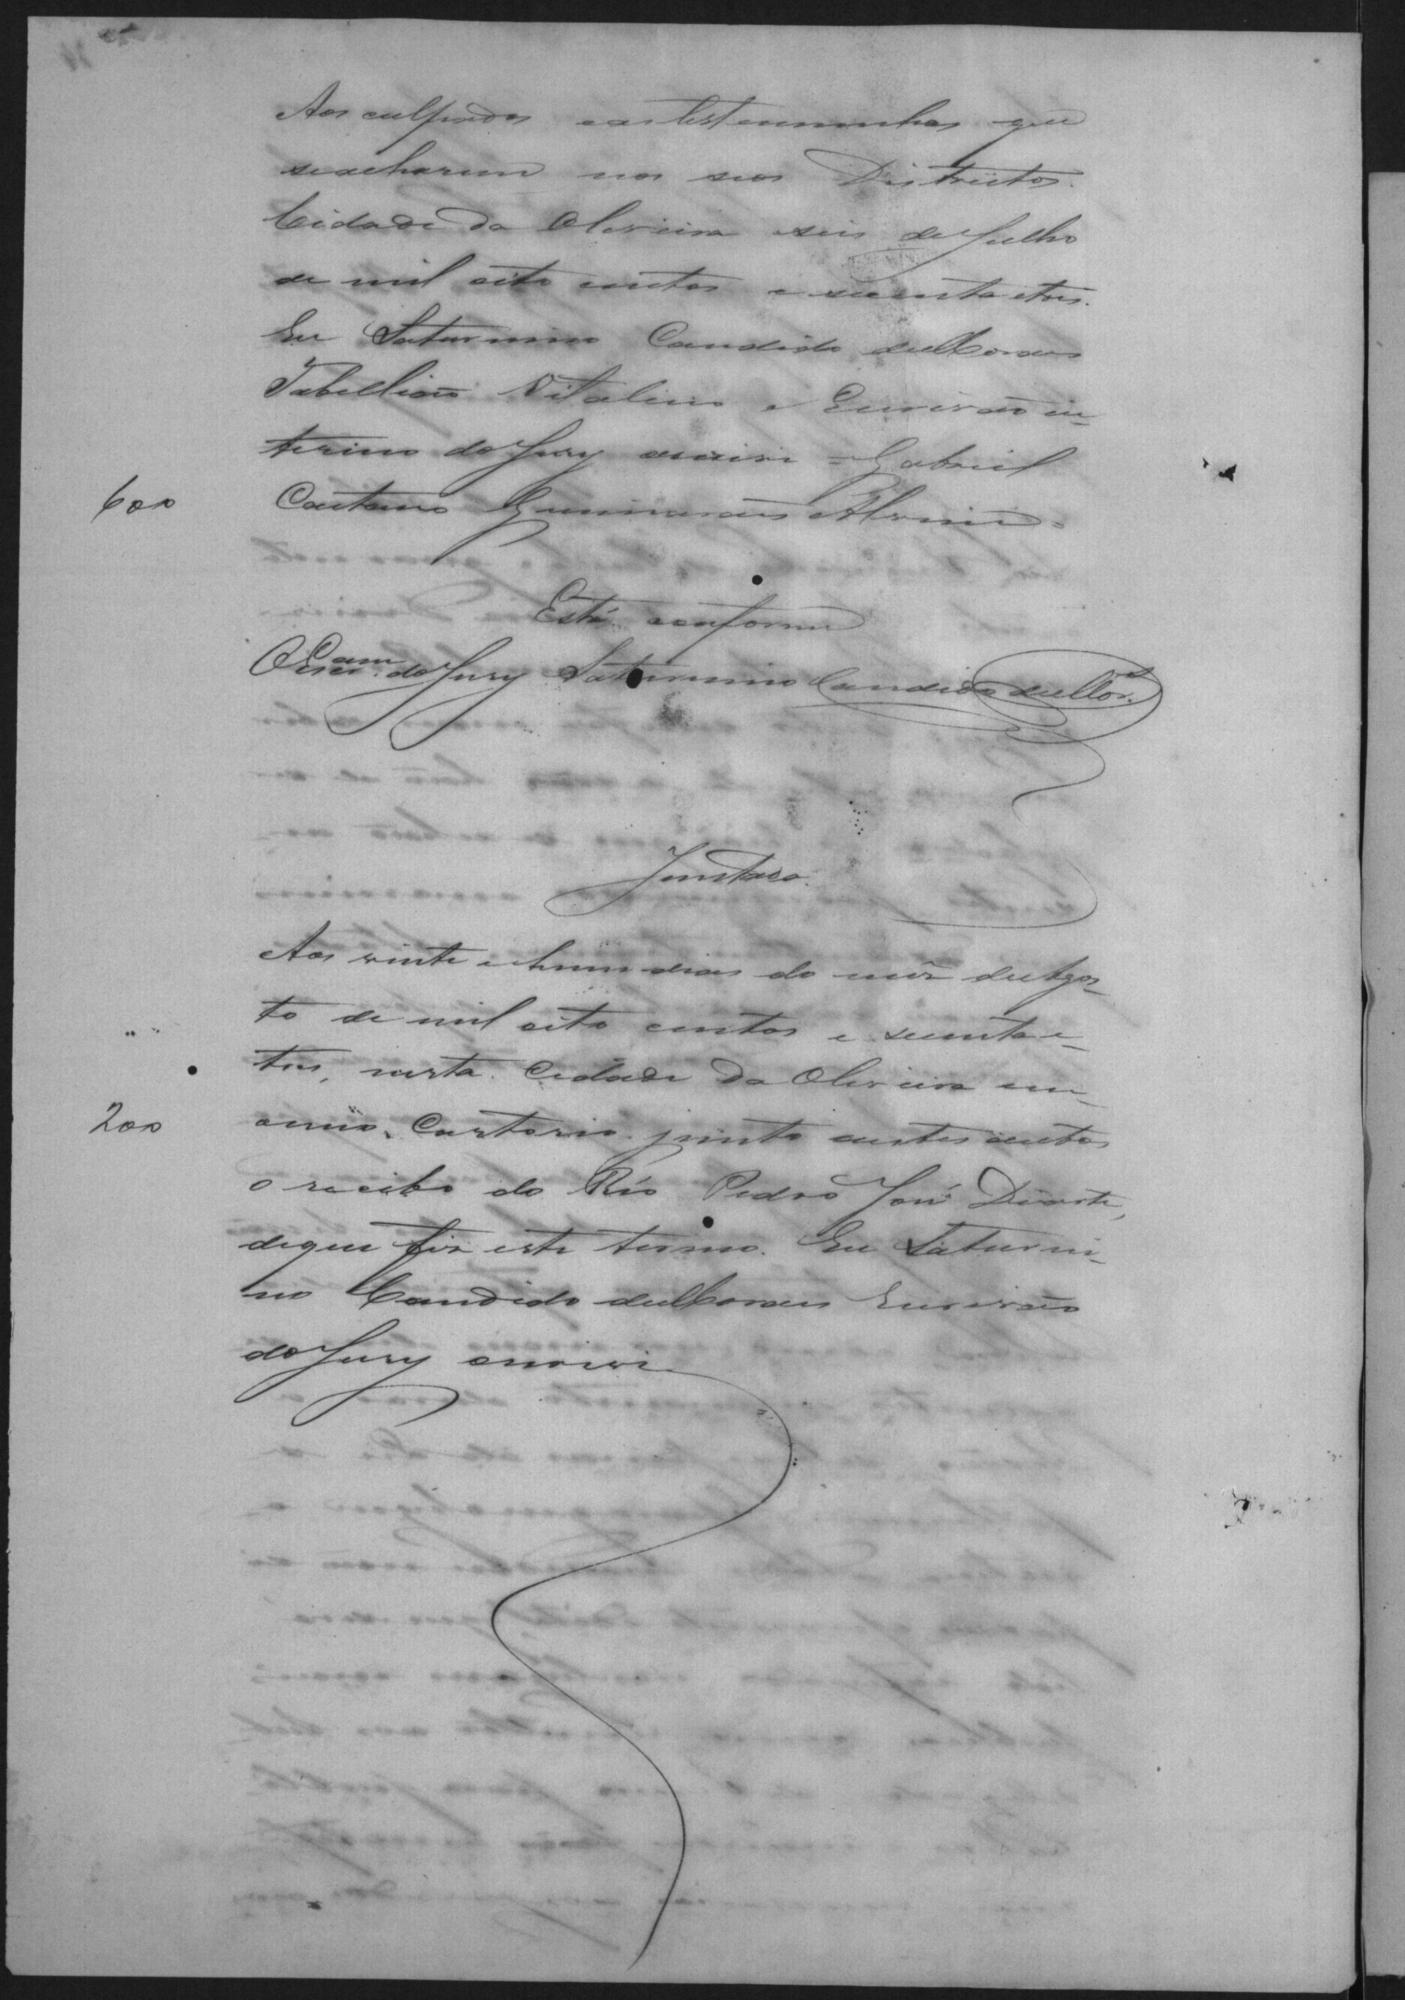 Aos culpados eas testemunhas que
seacharem nos seos Districtos.
Cidade da Oliveira seis de Julho
de mil oito centos e secenta etres.
Eu Saturnino Candido de Moraes
Tabellião Vitalicio e Escrivão in-
terino do Jury escrivi = Gabriel
600
Caetano Guimarães Alvim =
Está conforme
O Escr.am do Jury Saturnino Candido de Mor.s
Juntada.
Aos vinte ehum dias do mês de Agos-
to de mil oito centos e secenta e-
tres, nesta Cidade da Oliveira em
200
o meo Cartorio junto aestes autos
o recibo do Réo Pedro José Duarte,
deque fiz este termo. Eu Saturni-
no Candido de Moraes Escrivão
do Jury escrivi